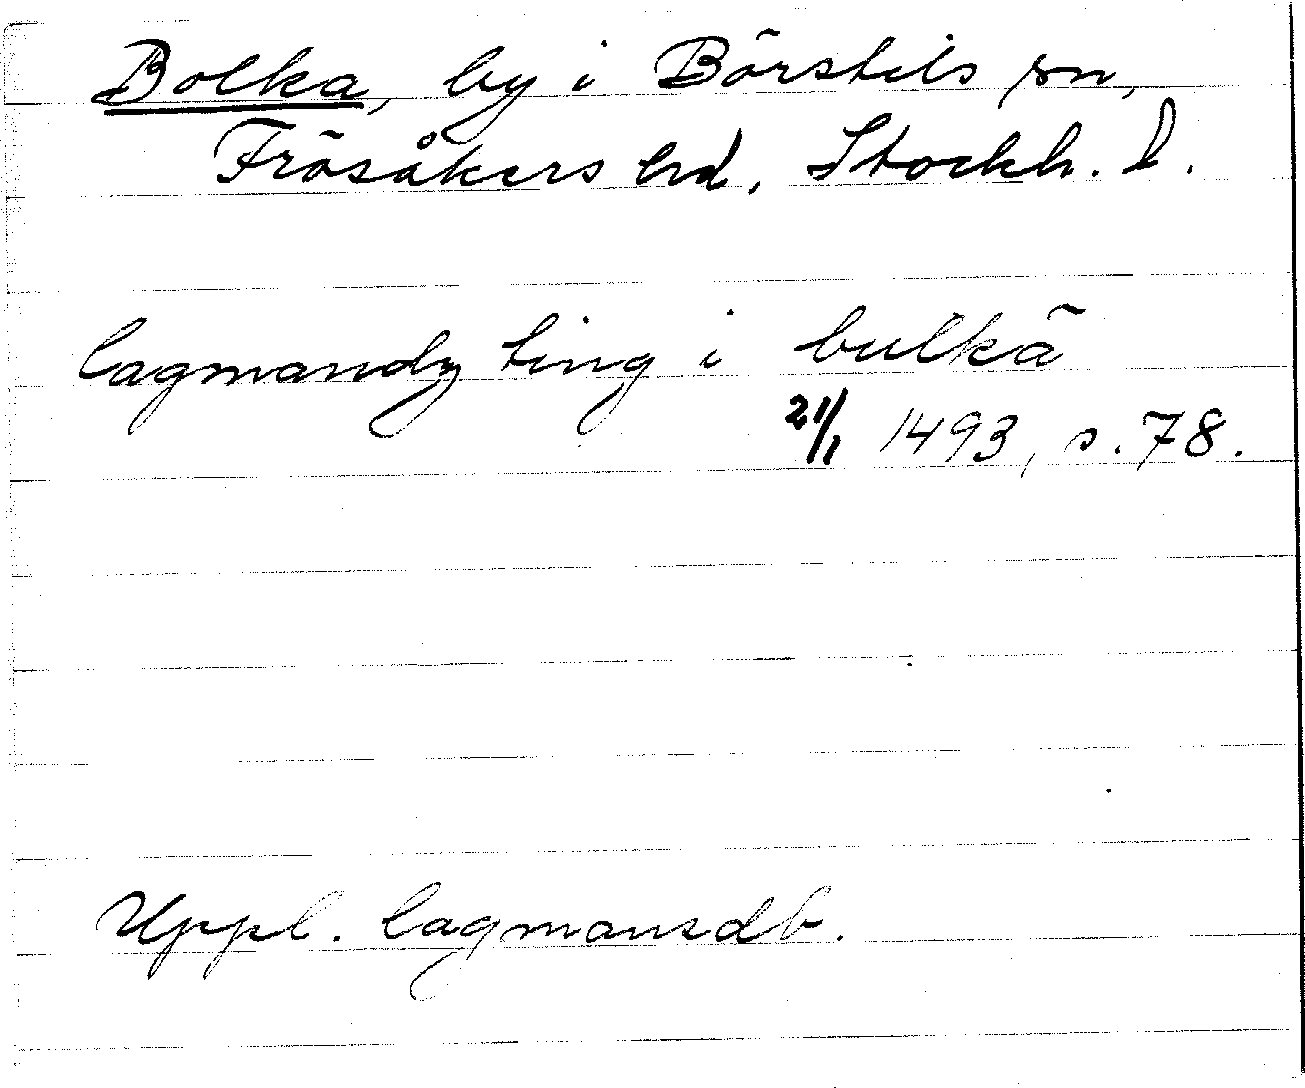 Bolka, by i Börstils sn,
Frösåkers hd, Stockh. l.
lagmandz ting i bulkä
21/1 1493, s. 78.
Uppl. lagmansdb.